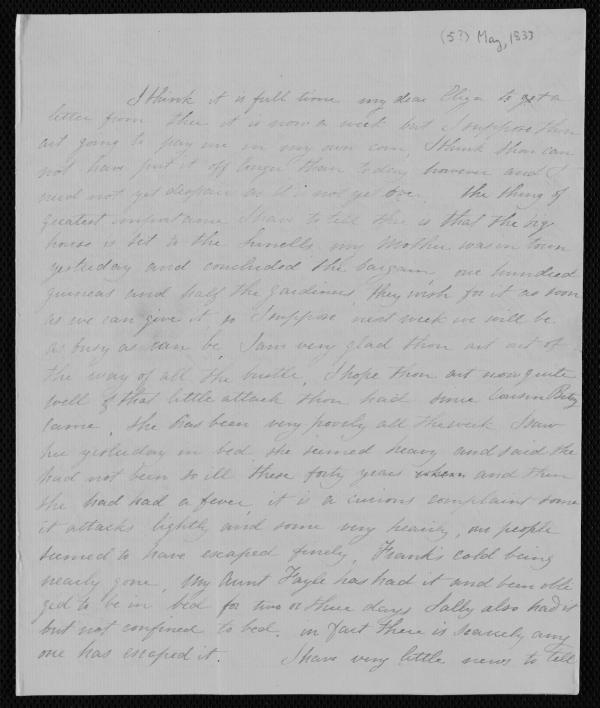 (5?) May, 1833
I think it is full time my dear Eliza to get a
letter from thee it is now a week but I suppose thou
art going to pay me in my own coin, I think thou can
not have put it off longer than today however and I
need not yet despair as it is not yet over. The thing of
greatest importance I have to tell thee is that the big
house is let to the my Mother was in town
yesterday and concluded the bargain, one hundred
guineas and half the gardiners, they wish for it as soon
as we can give it, so I suppose next week we will be
as busy as can be, I am very glad thou art out of
the way of all the bustle, I hope thou art now quite
well of that little attack thou had since Cousin Betsy
came, she has been very poorly all the week I saw
her yesterday in bed, she seemed heavy and said she
had not been so ill these forty years and then
she had had a fever, it is a curious complaint some
it attacks lightly and some very heavily, our people
seemed to have escaped finely, Frank's cold being
nearly gone, My Aunt Fayle has had it and been obli
ged to be in bed for two or three days Sally also had it
but not confined to bed, in fact there is scarcely any
one has escaped it. I have very little news to tell